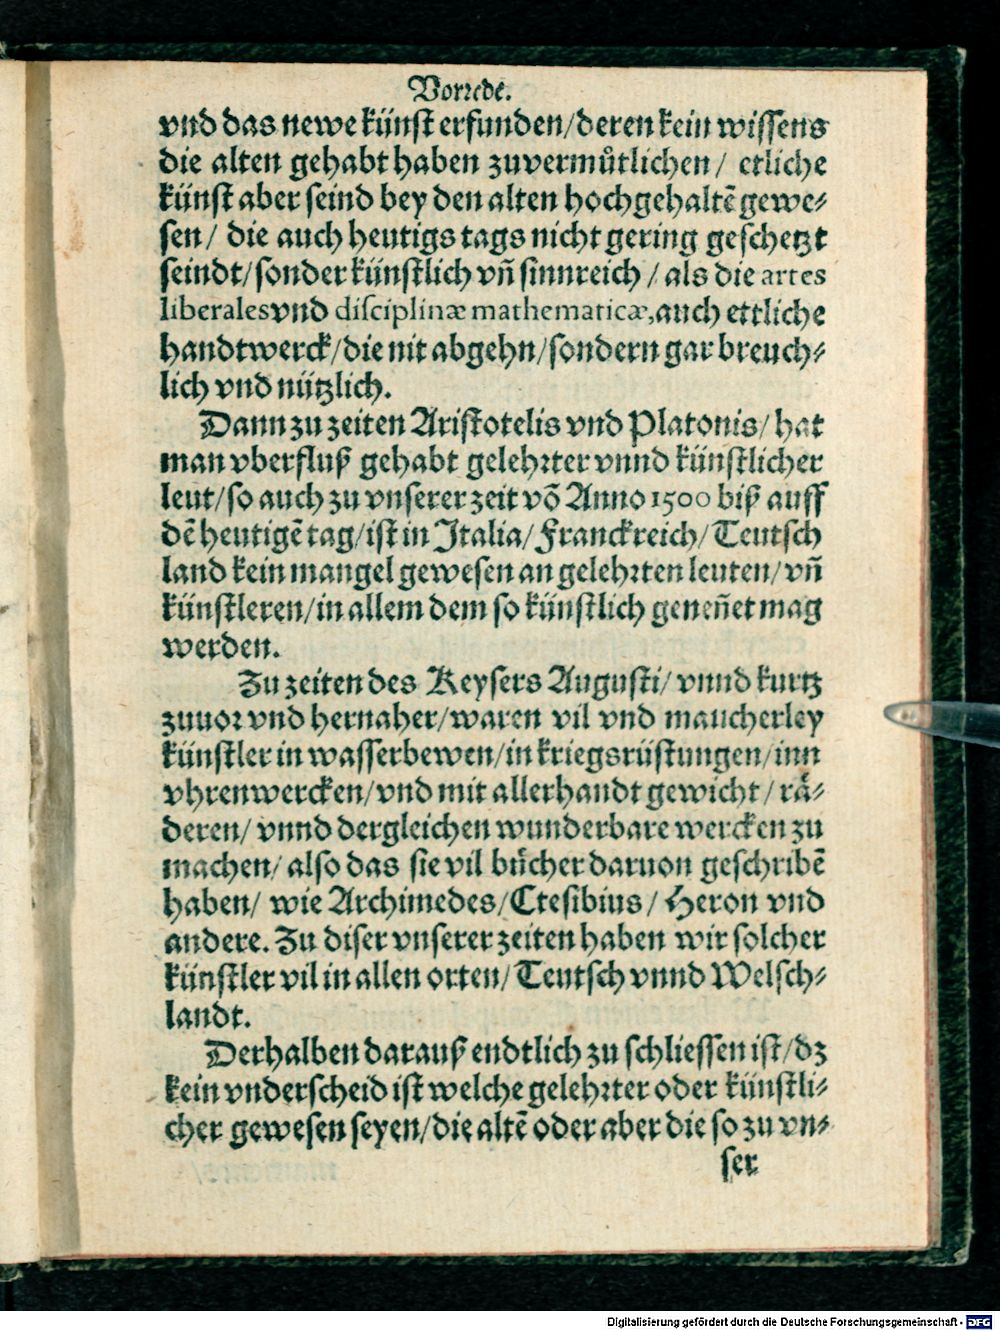 Vorrede.
vnd das newe künst erfunden/deren kein wissens
die alten gehabt haben zuvermůtlichen/ etliche
künst aber seind bey den alten hochgehaltẽ gewe⸗
sen/ die auch heutigs tags nicht gering geschetzt
seindt/sonder künstlich vñ sinnreich/als die artes
liberales vnd disciplinæ mathematicæ, auch ettliche
handtwerck/die nit abgehn/sondern gar breuch⸗
lich vnd nützlich.
Dann zu zeiten Aristotelis vnd Platonis/ hat
man vberfluß gehabt gelehrter vnnd künstlicher
leut/so auch zu vnserer zeit võ Anno 1500 biß auff
dẽ heutigẽ tag/ist in Italia/Franckreich/Teutsch
land kein mangel gewesen an gelehrten leuten/vñ
künstleren/in allem dem so künstlich geneñet mag
werden.
Zu zeiten des Keysers Augusti/ vnnd kurtz
zuuor vnd hernaher/waren vil vnd mancherley
künstler in wasserbewen/in kriegsrüstungen/inn
vhrenwercken/vnd mit allerhandt gewicht/ raͤ⸗
deren/ vnnd dergleichen wunderbare wercken zu
machen/ also das sie vil buͤcher daruon geschribẽ
haben/ wie Archimedes/Ctesibius/ Heron vnd
andere. Zu diser vnserer zeiten haben wir solcher
künstler vil in allen orten/Teutsch vnnd Welsch⸗
landt.
Derhalben darauß endtlich zu schliessen ist/dz
kein vnderscheid ist welche gelehrter oder künstli⸗
cher gewesen seyen/die altẽ oder aber die so zu vn⸗
ser
Digitalisierung gefördert durch die Deutsche Forschungsgemeinschaft - DFG